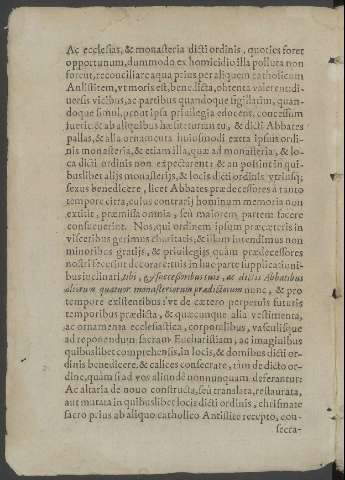 Ac ecclesias, & monasteria dicti ordinis, quoties foret
opportunum, dummodo ex homicidio illa polluta non
forent, reconciliare aqua prius per aliquem catholicum
Antistitem, vt moris est, benedicta, obtenta valerent: di-
uersis vicibus, ac partibus quandoque sigillatim, quan-
doque simul, prout ipsa priuilegia edocent, concessum
fuerit: & ab aliquibus hæsitetur an tu, & dicti Abbates
pallas, & alia ornamenta huiusmodi extra ipsius ordi-
nis monasteria, & etiam illa, quæ ad monasteria, & lo-
ca dicti ordinis non expectarent: & an possint in qui-
buslibet alijs monasterijs, & locis dicti ordinis vtriusq;
sexus benedicere, licet Abbates prædecessores à tanto
tempore citra, cuius contrarij hominum memoria non
extitit, præmissa omnia, seu maiorem partem facere
consueuerint. Nos, qui ordinem ipsum præcæteris in
visceribus gerimus charitatis, & illum intendimus non
minoribus gratijs, & priuilegijs quàm prædecessores
nostri fecerint decorare: tuis in hac parte supplicationi-
bus inclinati, tibi, & successoribus tuis, ac dictis Abbatibus
aliorum quatuor monasteriorum prædictorum nunc, & pro
tempore existentibus: vt de cætero perpetuis futuris
temporibus prædicta, & quæcunque alia vestimenta,
ac ornamenta ecclesiastica, corporalibus, vasculisque
ad reponendum sacram Eucharistiam, ac imaginibus
quibuslibet comprehensis, in locis, & domibus dicti or-
dinis benedicere, & calices consecrare, tàm de dicto or-
dine, quàm si ad vos aliunde nonnunquam deferantur:
Ac altaria de nouo constructa, seu translata, restaurata,
aut mutata in quibuslibet locis dicti ordinis, chrismate
sacro prius ab aliquo catholico Antistite recepto, con-
secra-